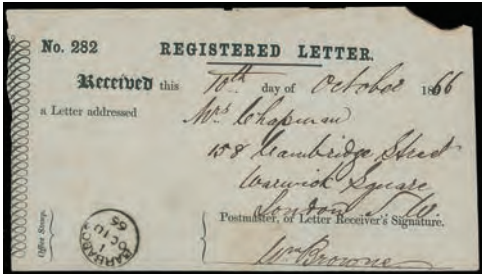 No. 282 REGISTERED LETTER.
Received this 10th day of October 1866
a Letter addressed Mrs Chapman
158 Cambridge Street
Warwick Square
London S.W.
Postmaster, or Letter Receiver's Signature.
Wm Browne
Office Stamp.
BARBADOS
OC 10
65